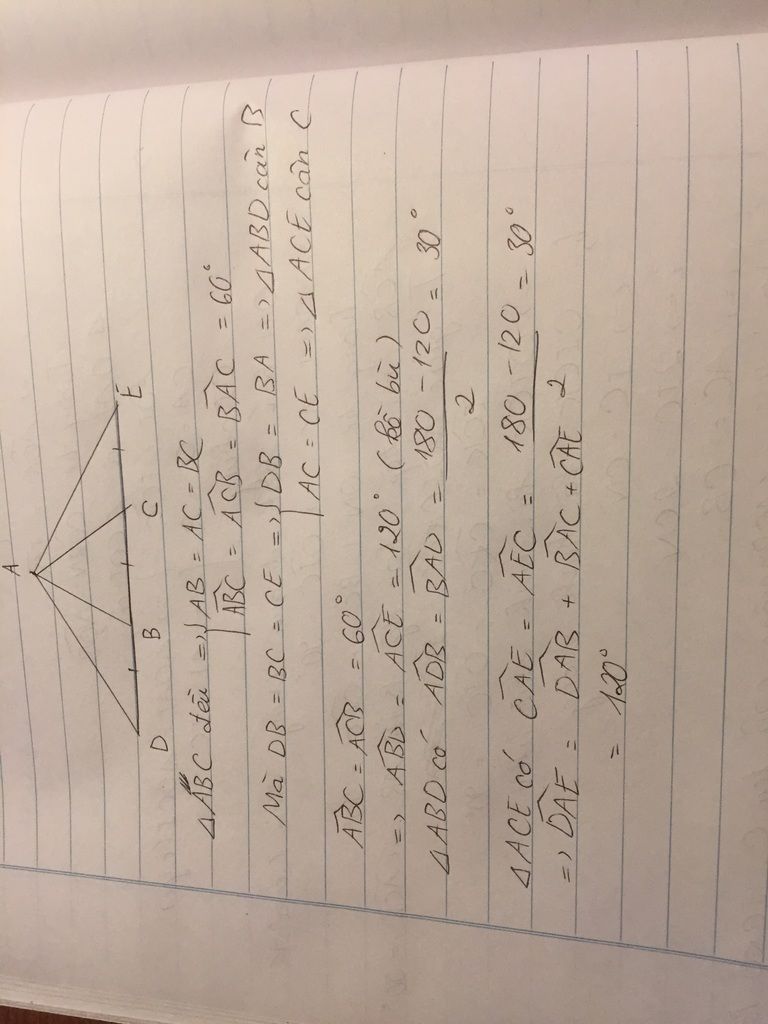 A
D B C E
△ABC đều => { AB = AC = BC
{ \widehat{ABC} = \widehat{ACB} = \widehat{BAC} = 60°
Mà DB = BC = CE => { DB = BA => △ABD cân B
{ AC = CE => △ACE cân C
\widehat{ABC} = \widehat{ACB} = 60°
=> \widehat{ABD} = \widehat{ACE} = 120° (kề bù)
△ABD có \widehat{ADB} = \widehat{BAD} = \frac{180 - 120}{2} = 30°
△ACE có \widehat{CAE} = \widehat{AEC} = \frac{180 - 120}{2} = 30°
=> \widehat{DAE} = \widehat{DAB} + \widehat{BAC} + \widehat{CAE}
= 120°